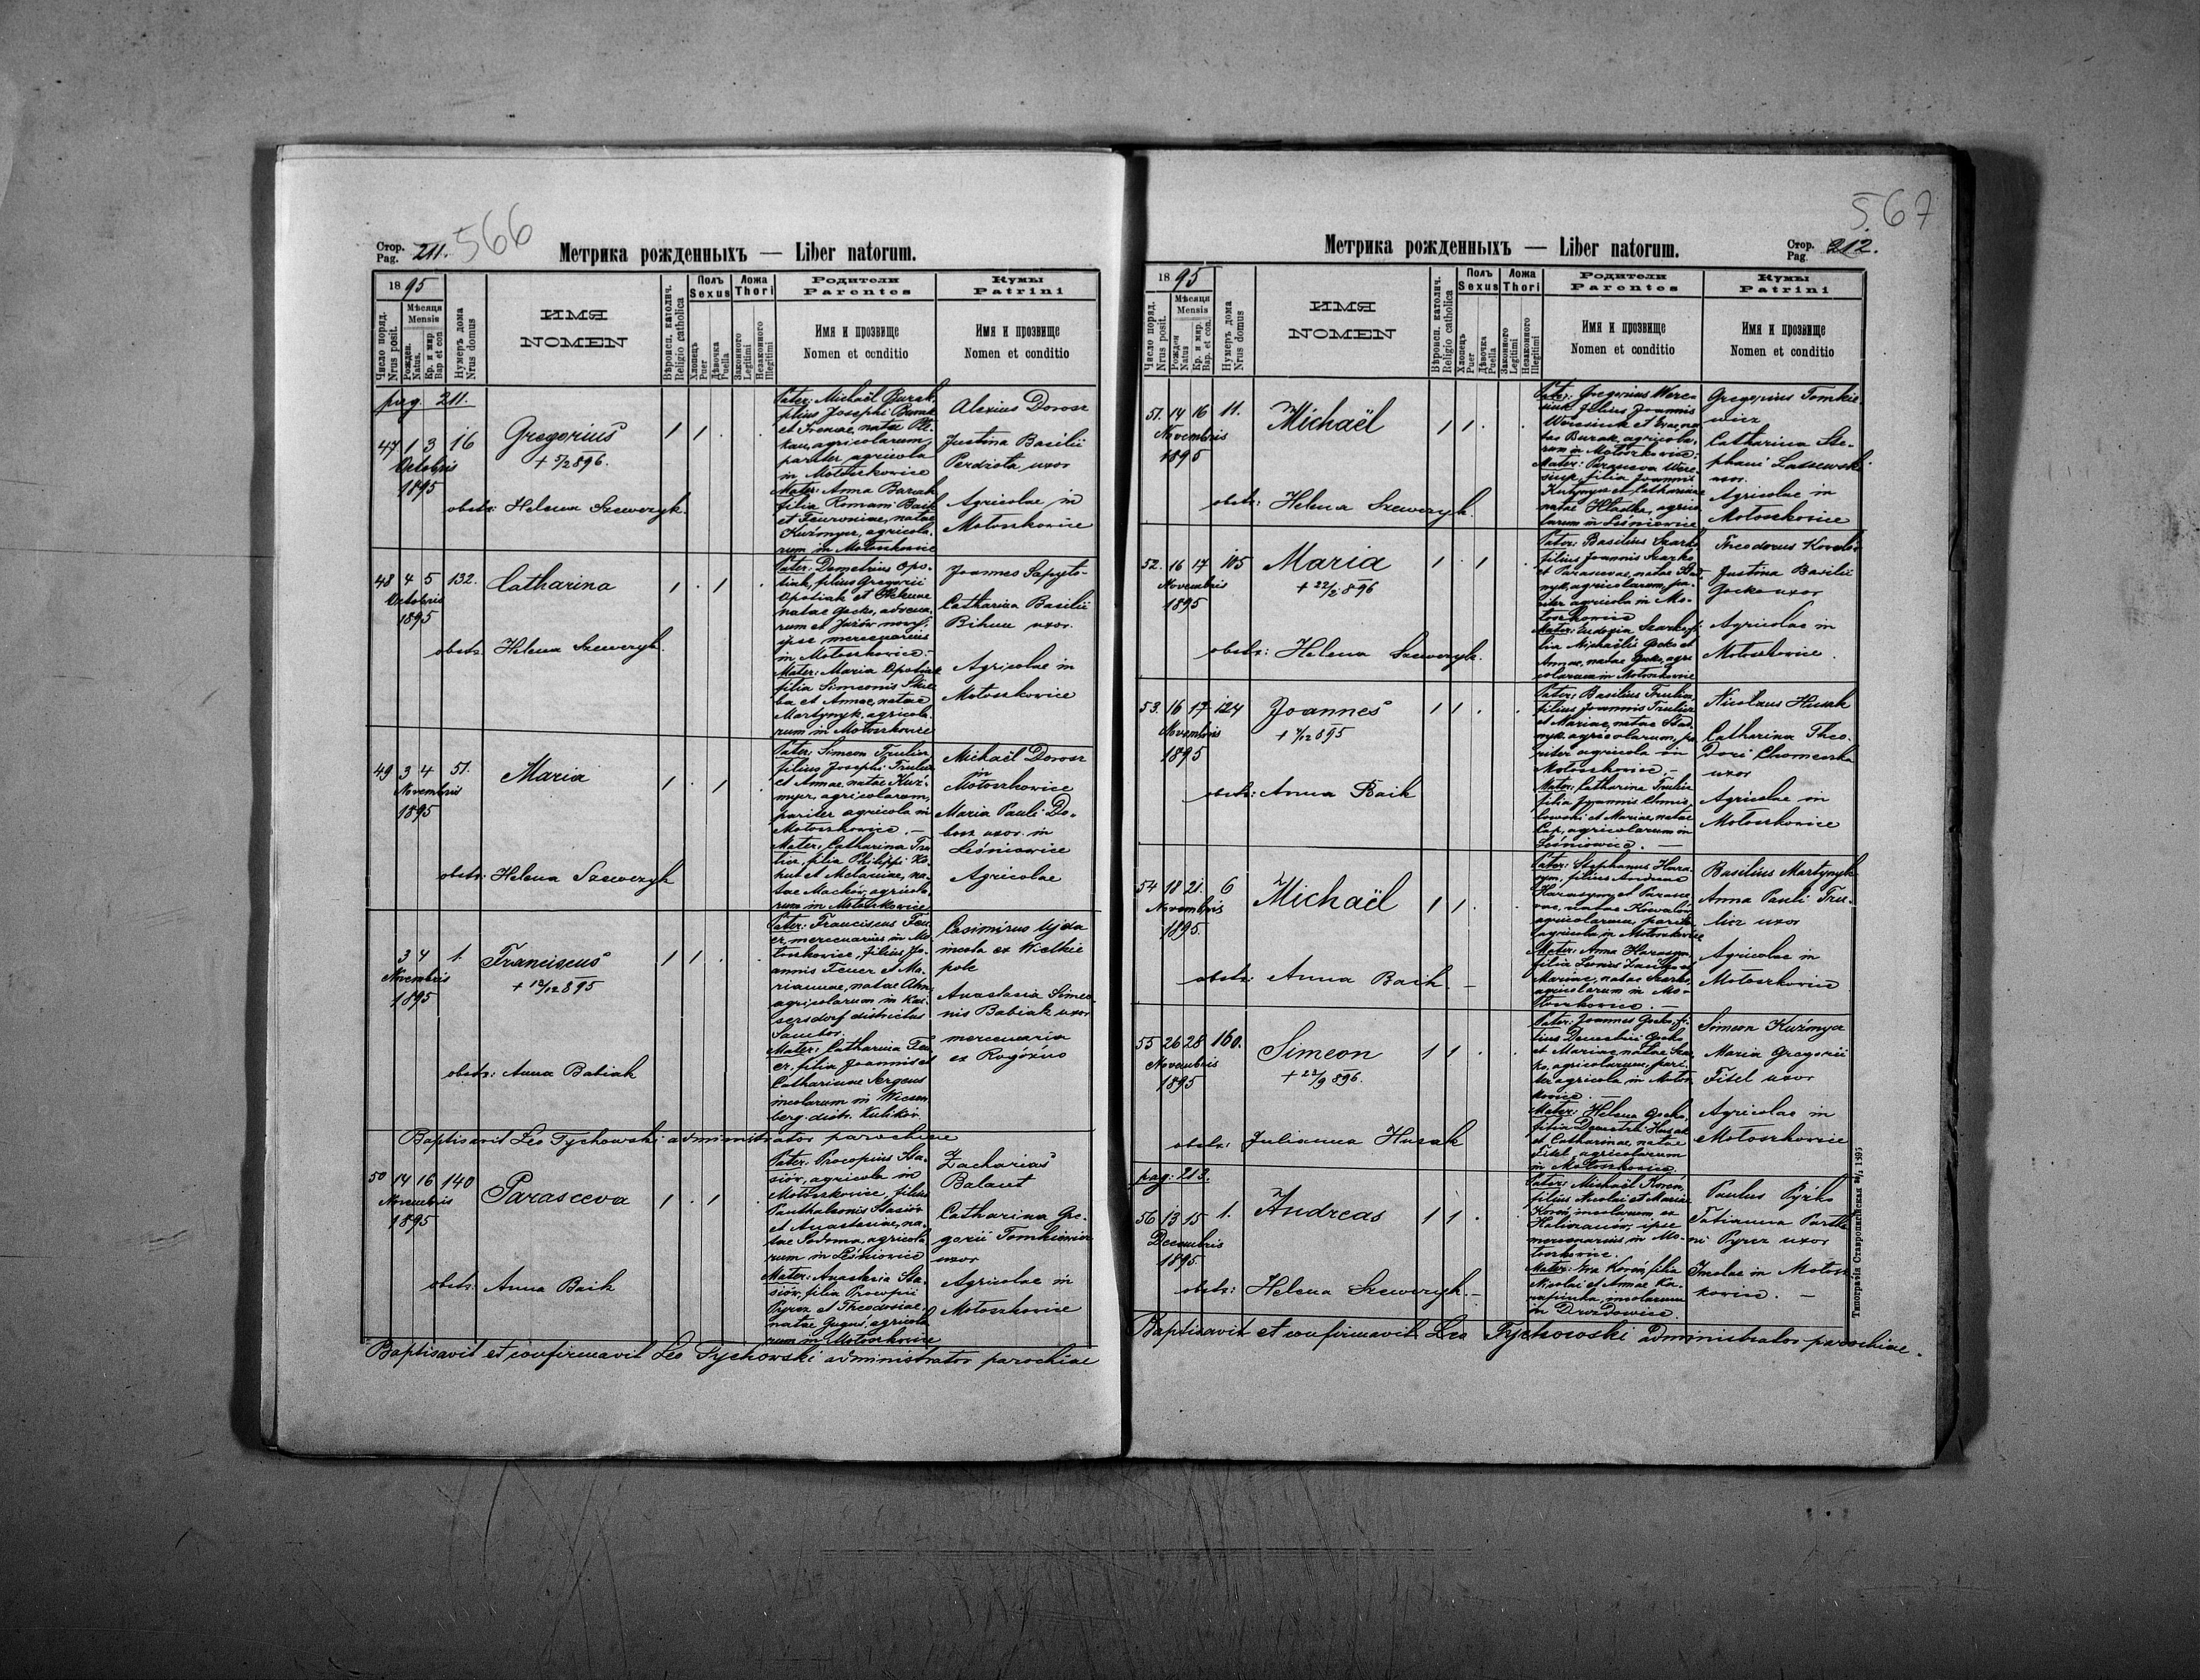 566
Стор.
Pag. 211.
Метрика рожденныхъ — Liber natorum.
1895
Мѣсяця
Mensis
Число поряд.
Nrus posit.
Рожден.
Natus.
Кр. и мѵр
Bap et con
Нумеръ дома
Nrus domus
ИМЯ
NOMEN
Вѣроисп. католич.
Religio catholica
Полъ
Sexus
Хлопецъ
Puer
Дѣвочка
Puella
Ложа
Thori
Законного
Legitimi
Незаконного
Illegitimi
Родители
Parentes
Имя и прозвище
Nomen et conditio
Кумы
Patrini
Имя и прозвище
Nomen et conditio
pag. 211.
47 1 3 16
Octobris
1895
Gregorius
+ 5/2 896.
obstr: Helena Szewczyk.
1 1 . .
Pater: Michaël Burak
filius Josephi Burak
et Irenae, natae
agricolarum,
pariter agricola
in Mołoszkowice
Mater: Anna Burak
filia Romani Baik
et Feuroniae, natae
Kuźmycz, agricola-
rum in Mołoszkowice
Alexius Dorosz
Justina Basilii
Perdziota uxor
Agricolae in
Mołoszkowice
48 4 5 132.
Octobris
1895
Catharina
obstr. Helena Szewczyk.
1 . 1 .
Pater: Demetrius Opo-
tiak, filius Gregorii
Opotiak et Helenae
natae Gocko, advena-
rum et Jazów nowy,
ipse mercenarius
in Mołoszkowice.-
Mater: Maria Opotiak
filia Simeonis
et Annae, natae
Martynyk, agricola-
rum in Mołoszkowice
Joannes
Catharina Basilii
Bihun uxor.
Agricolae in
Mołoszkowice
49 3 4 51.
Novembris
1895
Maria
obstr: Helena Szewczyk
1 . 1
Pater: Simeon Trulicz
filius Josephi Trulicz
et Annae, natae Kuź-
mycz, agricolarum,
pariter agricola in
Mołoszkowice. —
Mater: Catharina Tru-
licz, filia Philippi Ko-
hut et Melaniae, na-
tae Maćków, agricola-
rum in Mołoszkowice
Michaël Dorosz
in
Mołoszkowice
Maria Pauli Do-
bosz uxor. in
Leśniowice
Agricolae
3 4 1.
Novembris
1895
Franciscus
+ 12/12 895
obstr: Anna Babiak
1 1 .
Pater: Franciscus Feu-
er, mercenarius in Mo-
łoszkowice, filius Jo-
annis Feuer et Ma-
riannae, natae
agricolarum in Kai-
sersdorf districtus
Sambor.
Mater: Catharina Feu-
er, filia Joannis et
Catharinae Sergeus
incolarum in Wiesen
berg. distr. Kulików.
Casimirus Ujda
incola ex Wielkie
pole
Anastasia Simeo-
nis Babiak uxor
mercenaria
ex Rogóźno
Baptisavit Leo Tychowski administrator parochiae
50 14 16 140
Novembris
1895
Parasceva
obstr: Anna Baik
1 . 1 .
Pater: Procopius Sta-
siów, agricola in
Mołoszkowice, filius
Panthaleonis Stasiów
et Anastasiae, na-
tae Sodoma, agricola-
rum in Leśniowice
Mater: Anastasia Sta-
siów, filia Procopii
Pyrcz et Theodosiae,
natae Gugus, agricola-
rum in Mołoszkowice
Zacharias
Balaut
Catharina Gre-
gorii Tomkiewicz
uxor
Agricolae in
Mołoszkowice
Baptisavit et confirmavit Leo Tychowski administrator parochiae
567
Метрика рожденныхъ — Liber natorum.
Стор.
Pag. 212.
1895
Мѣсяця
Mensis
Число поряд.
Nrus posit.
Рожден
Natus
Кр. и мѵр.
Bap. et con.
Нумеръ дома
Nrus domus
ИМЯ
NOMEN
Вѣроисп. католич.
Religio catholica
Полъ
Sexus
Хлопецъ
Puer
Дѣвочка
Puella
Ложа
Thori
Законного
Legitimi
Незаконного
Illegitimi
Родители
Parentes
Имя и прозвище
Nomen et conditio
Кумы
Patrini
Имя и прозвище
Nomen et conditio
51. 14 16 11.
Novembris
1895
Michaël
obstr: Helena Szewczyk.
1 1 . .
Pater: Gregorius Were-
siuk filius Joannis
Weresiuk et Evae, na-
tae Burak, agricola-
rum in Mołoszkowice:
Mater: Parasceva Were-
siuk, filia Joannis
Kutynycz et Catharinae
natae Hlastka, agrico-
larum in Leśniowice
Gregorius Tomkie
wicz
Catharina Ste-
phani Laszewski
uxor.
Agricolae in
Mołoszkowice
52. 16 17 105
Novembris
1895
Maria
+ 22/2 896
obstr: Helena Szewczyk.
1 . 1 .
Pater: Basilius Szarko
filius Joannis Szarko
et Parascevae, natae
agricolarum, pa-
riter agricola in Mo-
łoszkowice
Mater: Eudoxia Szarko, fi-
lia Michaëlis Gocko et
Annae, natae Gocko, agri-
colarum in Mołoszkowice
Theodorus
Justina Basilii
Gocko uxor
Agricolae in
Mołoszkowice.
53. 16 17 124
Novembris
1895
Joannes
obstr: Anna Baik
1 1 . .
Pater: Basilius Trulicz,
filius Joannis Trulicz
et Mariae, natae
agricolarum, pa-
riter agricola in
Mołoszkowice.-
Mater: Catharina Trulicz
filia Joannis Chmie-
lowski et Mariae, natae
Cap, agricolarum in
Leśniowice. —
Nicolaus Husak
Catharina Theo-
dori Chomenska
uxor
Agricolae in
Mołoszkowice
54 18 21. 6
Novembris
1895.
Michaël
obstr: Anna Baik. —
1 1 .
Pater: Stephanus Hara-
sym, filius Andreae
Harasym et Parasce-
vae, natae Kowalów
agricolarum, pariter
agricola, in Mołoszkowice
Mater: Anna Harasym
filia
Mariae, natae Szarko,
agricolarum in Mo-
łoszkowice. —
Basilius Martynyk
Anna Pauli Tru-
licz uxor
Agricolae in
Mołoszkowice
55 26 28 160.
Novembris
1895
Simeon
+ 22/9 896.
obstr: Julianna Husak
1 1 . .
Pater: Joannes Gocko, fi-
lius Demetrii Gocko
et Mariae, natae Szar-
ko, agricolarum, pari-
ter agricola, in Mołosz-
kowice. —
Mater: Helena Gocko,
filia Demetrii Husak
et Catharinae, natae
Fitel, agricolarum
in Mołoszkowice.
Simeon Kuźmycz
Maria Gregorii
Fitel uxor
Agricolae in
Mołoszkowice
pag: 213.
56 13 15 1.
Decembris
1895.
Andreas
obstr: Helena Szewczyk.-
1 1 . .
Pater: Michaël Koroń,
filius Nicolai et Mariae
Koroń, incolarum ex
Haliczanów, ipse
mercenarius in Mo-
łoszkowice.
Mater: Eva Koroń, filia
Nicolai et Annae Ka-
rapinka, incolarum
in Drozdowice.
Paulus Pyżko
Tatianna
Pyrcz uxor
Incolae in Mołosz
kowice. —
Baptisavit et confirmavit Leo Tychowski administrator parochiae.